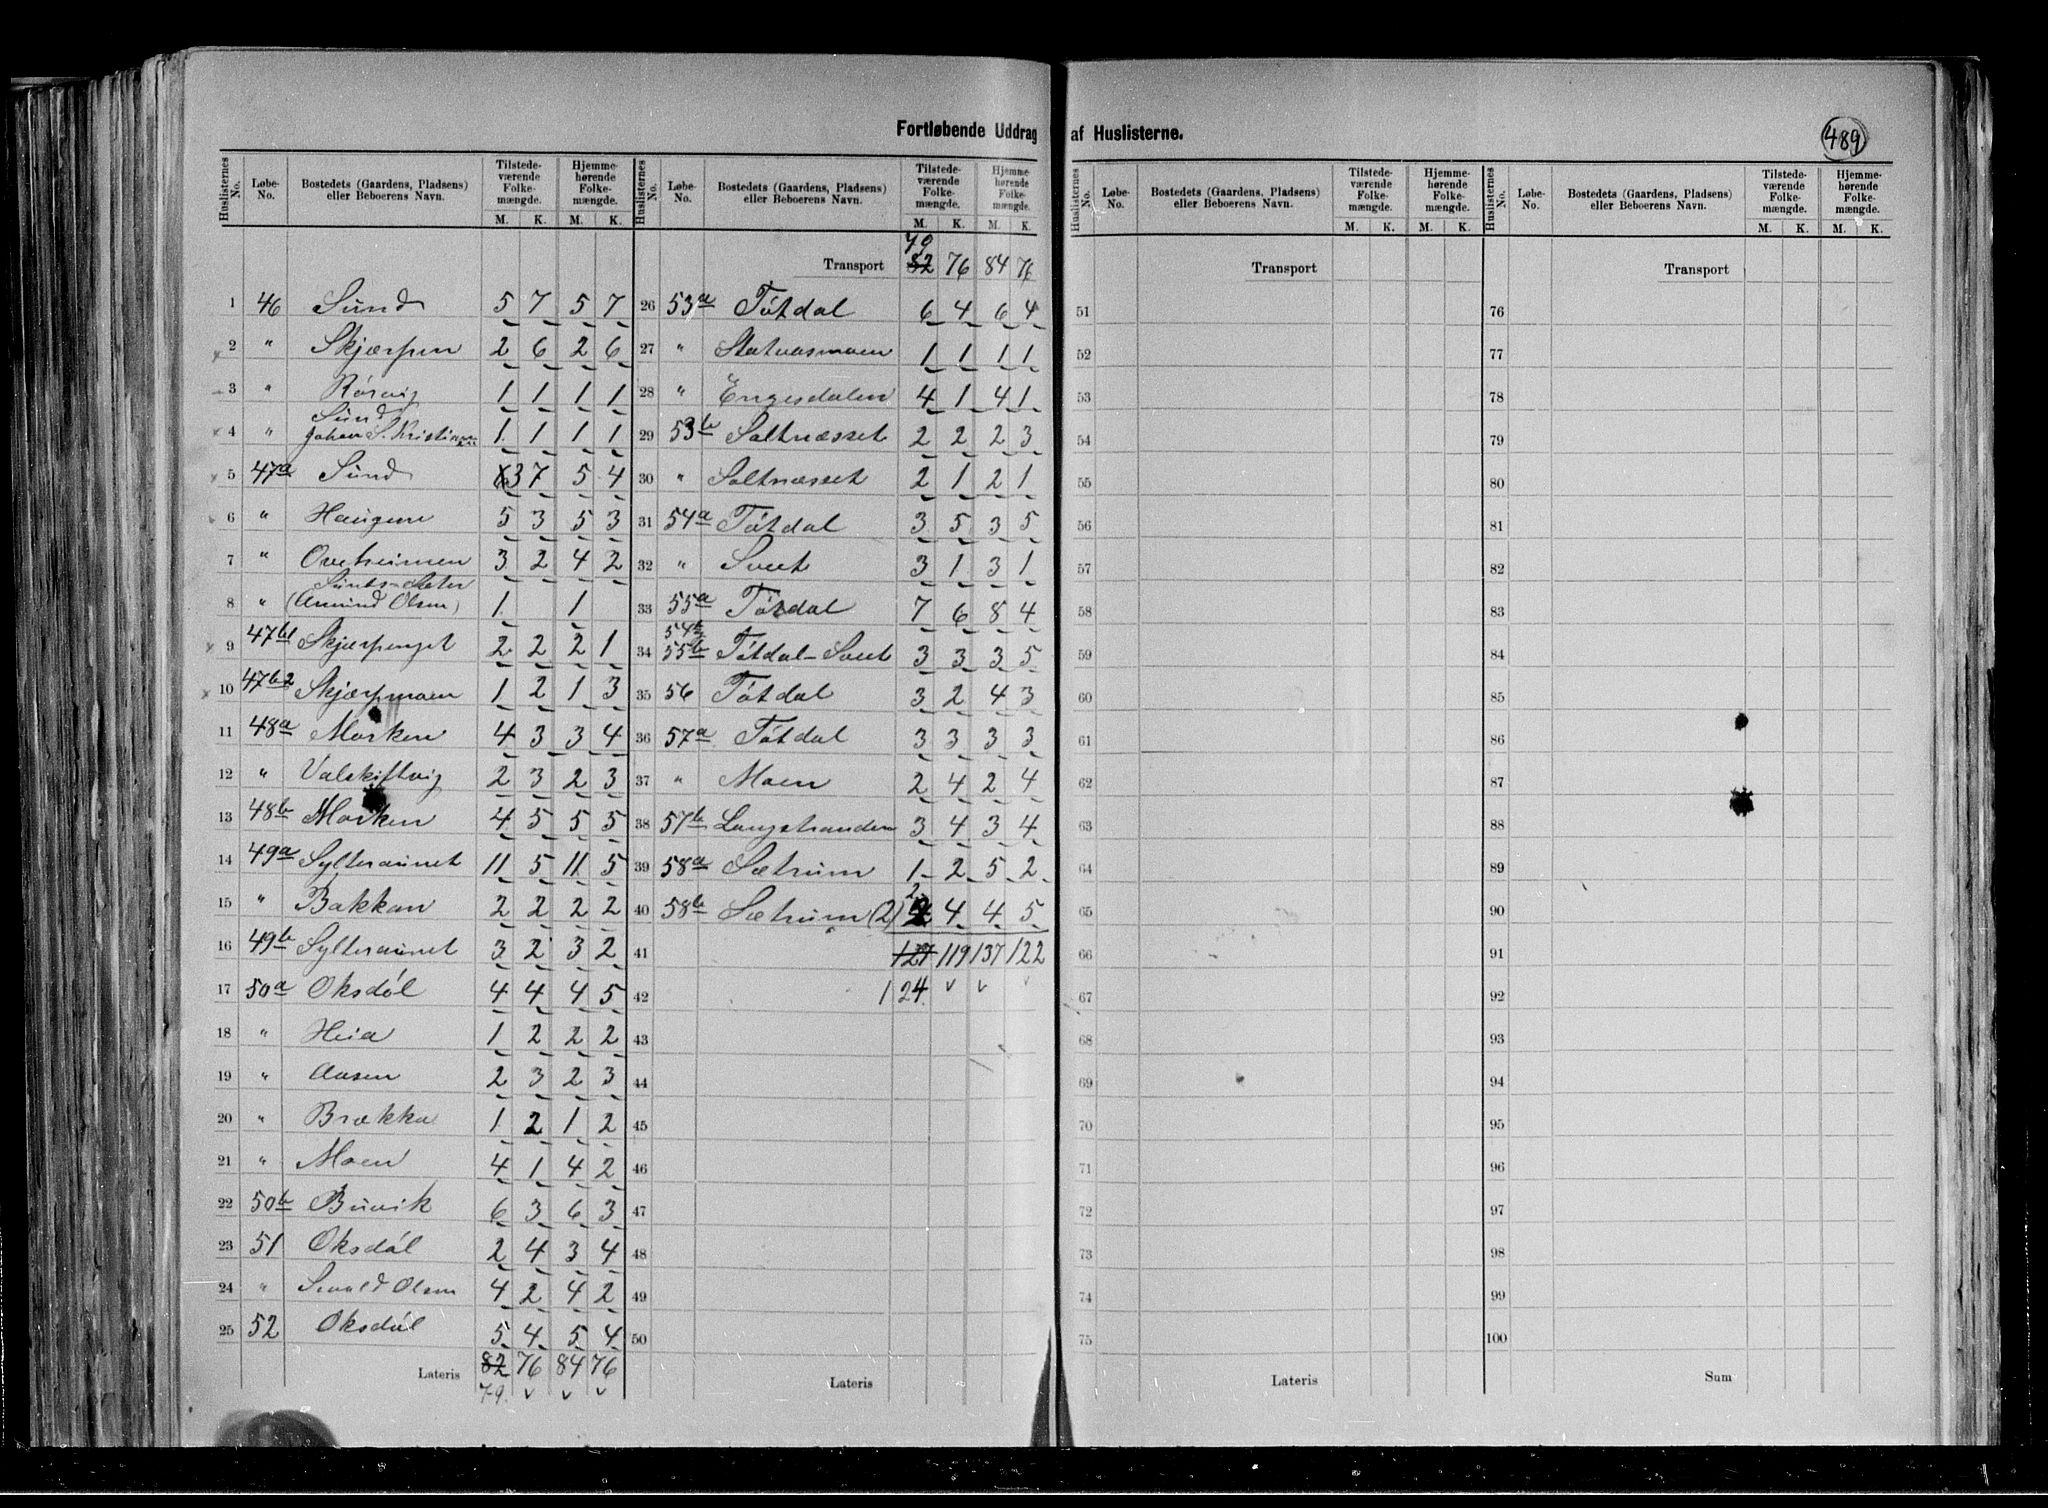 Fortløbende Uddrag af Huslisterne.
489
Huslisternes No. Løbe-No. Bostedets (Gaardens, Pladsens) eller Beboerens Navn. Tilstedeværende Folkemængde. M. K. Hjemmehørende Folkemængde. M. K.
1 46 Sund 5 7 5 7
2 " Skjærpen 2 6 2 6
3 " Rørvig 1 1 1 1
4 " Sund Johan S. 1 1 1 1
5 47a Sund 3 7 5 4
6 " Haugen 5 3 5 3
7 " 3 2 4 2
8 " Sunds-Sæter (Amund Olsen) 1 1
9 47b1 Skjærpenget 2 2 2 1
10 47b2 Skjærpmoen 1 2 1 3
11 48a Morken 4 3 3 4
12 " Valskiftvig 2 3 2 3
13 48b Morken 4 5 5 5
14 49a Sylteraunet 11 5 11 5
15 " Bakkan 2 2 2 2
16 49b Sylteraunet 3 2 3 2
17 50a Oksdøl 4 4 4 5
18 " Heia 1 2 2 2
19 " Aasen 2 3 2 3
20 " Brækka 1 2 1 2
21 " Moen 4 1 4 2
22 50b Buvik 6 3 6 3
23 51 Oksdøl 2 4 3 4
24 " Sivald Olsen 4 2 4 2
25 52 Oksdøl 5 4 5 4
Lateris 82 76 84 76
79
Huslisternes No. Løbe-No. Bostedets (Gaardens, Pladsens) eller Beboerens Navn. Tilstedeværende Folkemængde. M. K. Hjemmehørende Folkemængde. M. K.
79
Transport 82 76 84 76
26 53a Tøtdal 6 4 6 4
27 " Statvasmoen 1 1 1 1
28 " Engesdalen 4 1 4 1
29 53b Saltnæsset 2 2 2 3
30 " Saltnæsset 2 1 2 1
31 54a Tøtdal 3 5 3 5
32 " Sveet 3 1 3 1
33 55a Tøtdal 7 6 8 4
34 54b 55b Tøtdal-Sveet 3 3 3 5
35 56 Tøtdal 3 2 4 3
36 57a Tøtdal 3 3 3 3
37 " Moen 2 4 2 4
38 57b Langstranden 3 4 3 4
39 58a Sætrum 1 2 5 2
40 58b Sætrum (2) 2 4 4 5
41 127 119 137 122
42 124
43
44
45
46
47
48
49
50
Lateris
Huslisternes No. Løbe-No. Bostedets (Gaardens, Pladsens) eller Beboerens Navn. Tilstedeværende Folkemængde. M. K. Hjemmehørende Folkemængde. M. K.
Transport
51
52
53
54
55
56
57
58
59
60
61
62
63
64
65
66
67
68
69
70
71
72
73
74
75
Lateris
Huslisternes No. Løbe-No. Bostedets (Gaardens, Pladsens) eller Beboerens Navn. Tilstedeværende Folkemængde. M. K. Hjemmehørende Folkemængde. M. K.
Transport
76
77
78
79
80
81
82
83
84
85
86
87
88
89
90
91
92
93
94
95
96
97
98
99
100
Sum